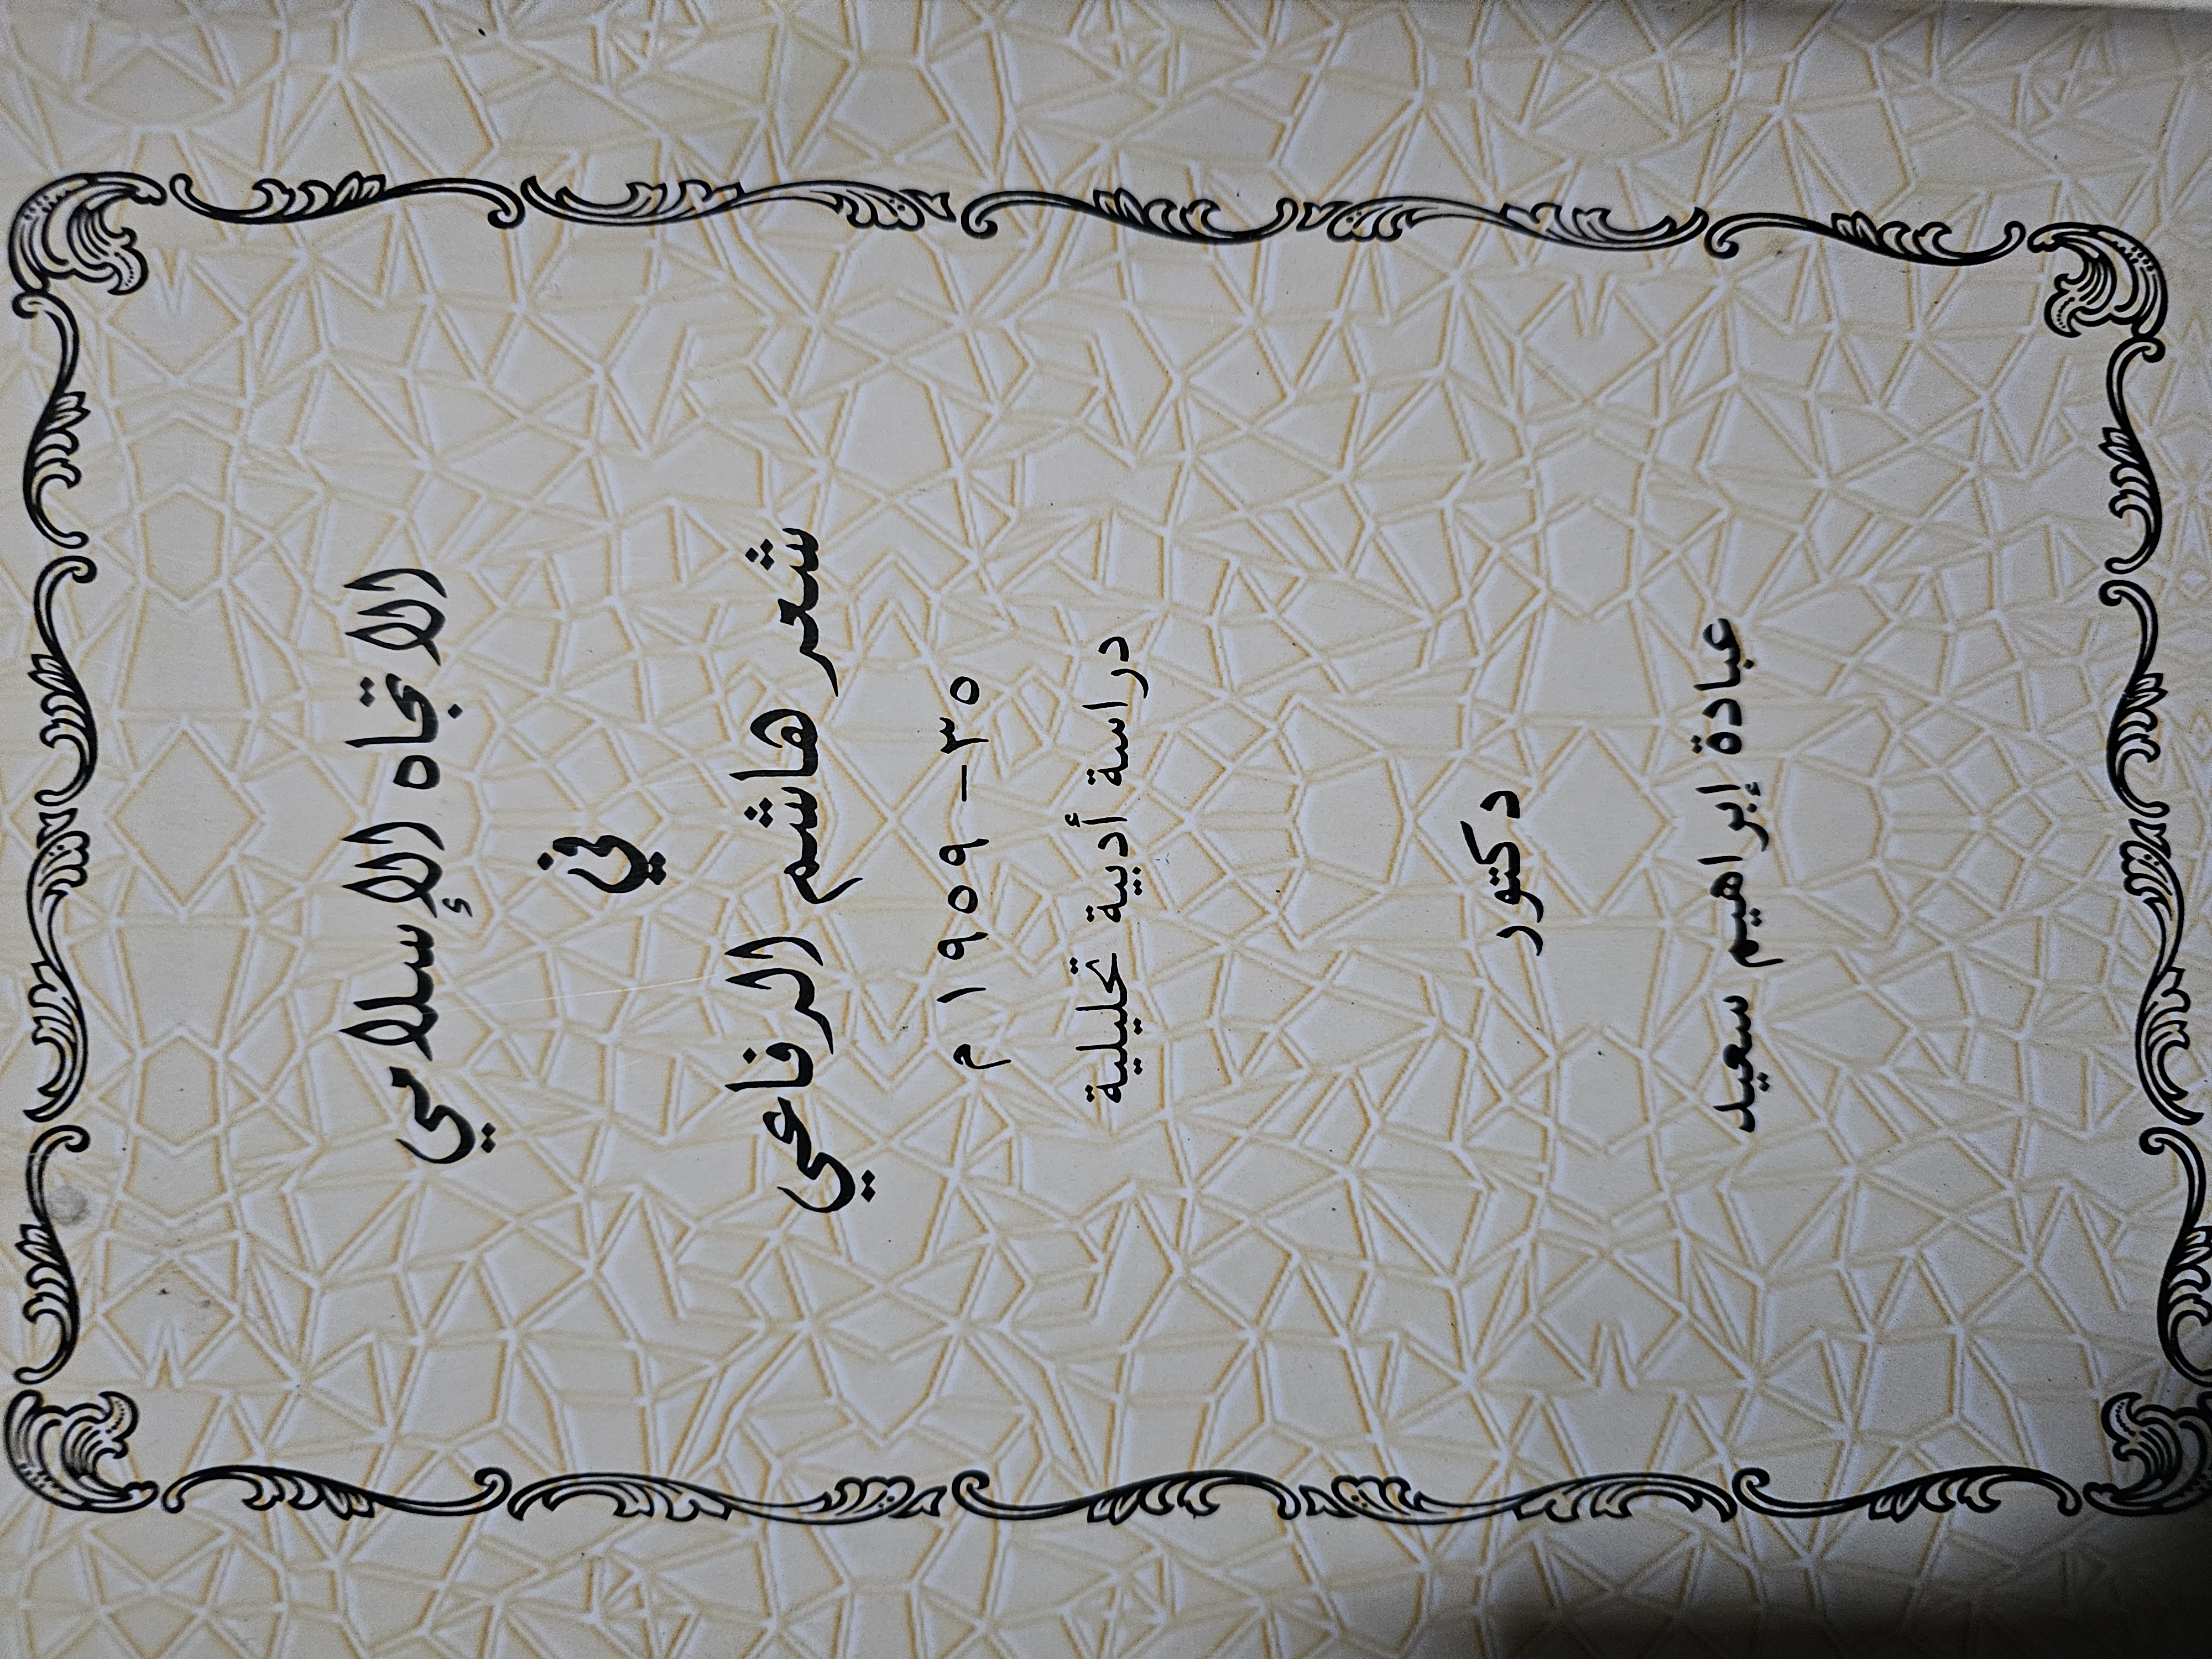 الاتجاه الإسلامي
في
شعر هاشم الرفاعي
٣٥ – ١٩٥٩ م
دراسة أدبية تحليلية
دكتور
عبادة إبراهيم سعيد